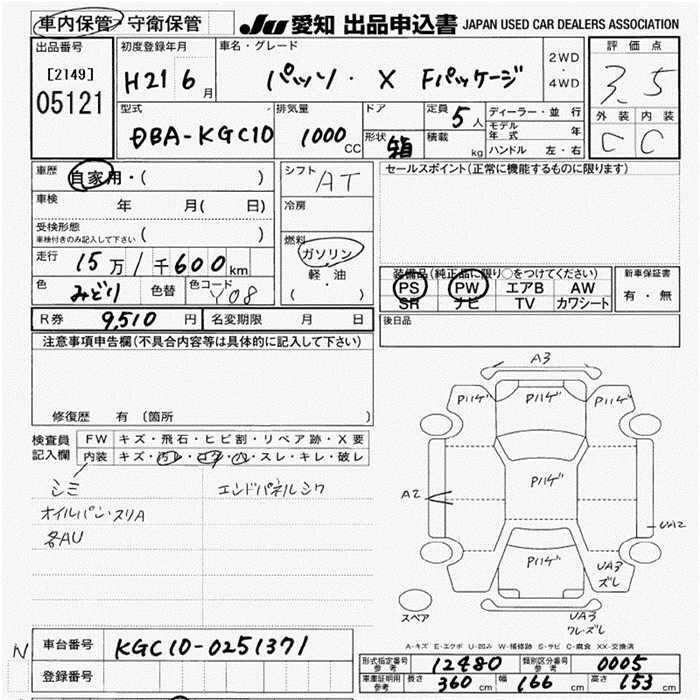 車内保管・守衛保管
JU 愛知 出品申込書 JAPAN USED CAR DEALERS ASSOCIATION
出品番号
[2149]
05121
初度登録年月
H21 6月
車名・グレード
パッソ・ X Fパッケージ
2WD
・
4WD
評価点
3.5
外装 内装
C C
型式
DBA-KGC10
排気量
1000 CC
ドア
形状 箱
定員 5人
積載 kg
ディーラー・並行
モデル年式 年
ハンドル 左・右
車歴
自家用・( )
車検 年 月( 日)
受検形態
車検付きのみ記入して下さい ( )
走行 15万1千600km
色 みどり 色替 色コード Y08
シフト AT
冷房
燃料
ガソリン
軽油
( )
セールスポイント(正常に機能するものに限ります)
装備品(純正品に限り○をつけてください)
PS PW エアB AW
SR ナビ TV カワシート
新車保証書
有・無
R券 9,510円 名変期限 月 日
後日品
注意事項申告欄(不具合内容等は具体的に記入して下さい)
修復歴 有 〔箇所 〕
検査員記入欄
FW キズ・飛石・ヒビ割・リペア跡・X要
内装 キズ・汚レ・コゲ・穴・スレ・キレ・破レ
シミ
オイルパン・スリA
各AU
エンドパネルシワ
A3
P.ハゲ P.ハゲ P.ハゲ
A2
P.ハゲ
UA2
P.ハゲ
UA3
ズレ
スペア
UA3
ワレ・ズレ
A-キズ E-エクボ U-凹み W-補修跡 S-サビ C-腐食 XX-交換済
N
車台番号 KGC10-0251371
登録番号
形式指定番号 参考 12480 類別区分番号 参考 0005
車庫証明用 参考 長さ 360cm 幅 166cm 高さ 153cm